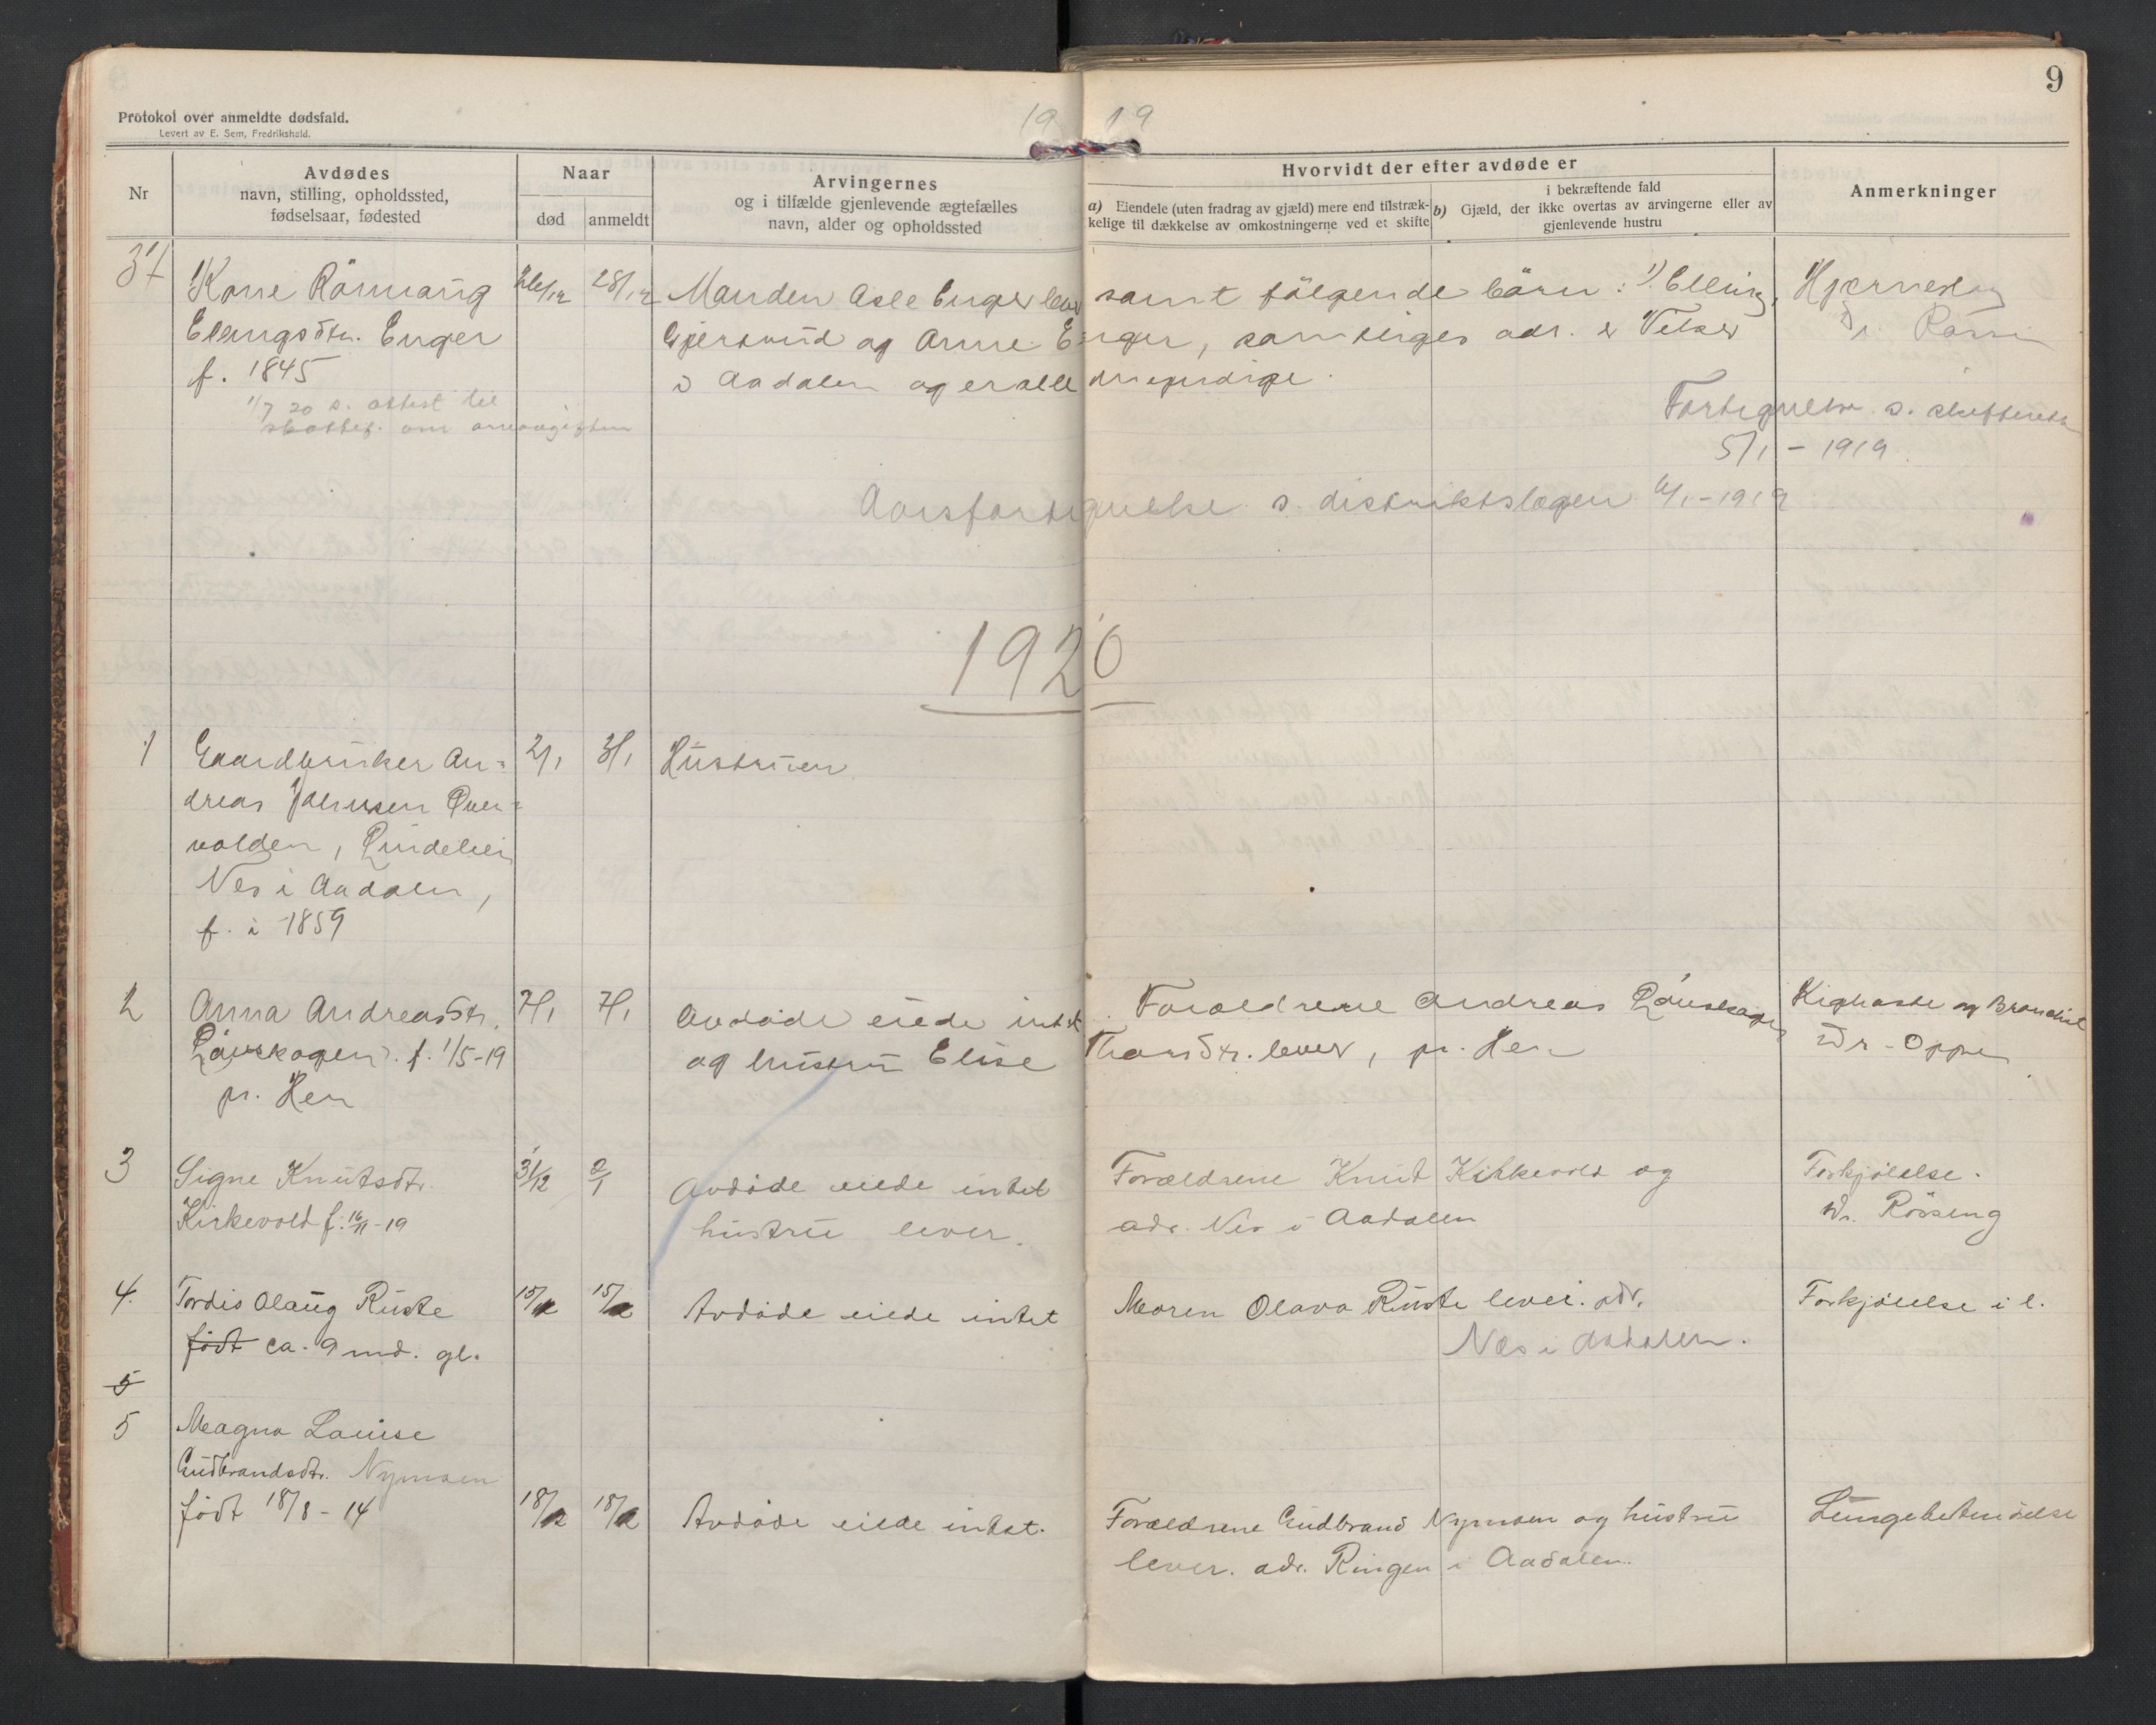 9
Protokol over anmeldte dødsfald.
Levert av E. Sem, Fredrikshald.
19 19
Nr
Avdødes
navn, stilling, opholdssted,
fødselsaar, fødested
Naar
død
anmeldt
Arvingernes
og i tilfælde gjenlevende ægtefælles
navn, alder og opholdssted
Hvorvidt der efter avdøde er
a) Eiendele (uten fradrag av gjæld) mere end tilstræk-
kelige til dækkelse av omkostningerne ved et skifte
i bekræftende fald
b) Gjæld, der ikke overtas av arvingerne eller av
gjenlevende hustru
Anmerkninger
37 Kone Rönnaug 26/12 28/12 Manden Asle Enger lever samt følgende börn: 1) Elling, Hjerneslag
Elingsdtr. Enger Gjertrud og Anne Enger, samtliges adr. er Velser Dr.
f. 1845 i Aadalen og er alle myndige.
1/7 20 s. attest til
om arveavgiften
Fortegnelse s. skifteretten
5/1 - 1919
Aarsfortegnelse s. distriktslægen 6/1-1919
1920
1 Gaardbruker An= 2/1 3/1 Hustruen
dreas Johnsen
volden,
Nes i Aadalen,
f. i 1859
2 Anna Andreasdtr. 7/1 7/1 Avdöde eiede intet. Foreldrene Andreas Kighoste og Bronchit
f. 1/5-19 og hustru Elise Thorsdtr. lever, pr. Hen Dr. Oppen
pr. Hen
3 Signe Knutsdtr. 31/12 2/1 Avdöde eiede intet Forældrene Knut Kirkevold og Forkjölelse.
Kirkevold f. 16/11-19 hustru lever. adr. Nes i Aadalen Dr. Rösseng
4. Tordis Olaug Ruste 15/2 15/2 Avdöde eiede intet Moren Olava Ruste lever. adr. Forkjölelse i l.
født ca. 9 md. gl. Nes i Aadalen.
5
5 Magna Louise
Gudbrandsdtr. Nymoen
født 18/8 - 14 18/2 18/2 Avdöde eiede intet. Forældrene Gudbrand Nymoen og hustru Lungebetendelse
lever. adr. Ringen i Aadalen.